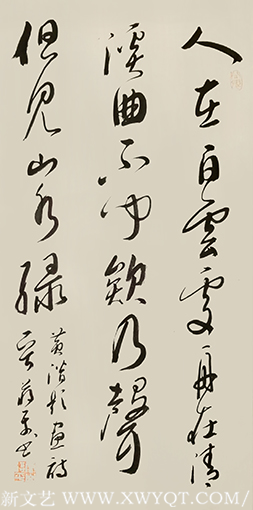 人在白雲處舟在清
溪曲不聞欸乃聲
但見山水綠
黄溍題畫詩
書
新文艺 WWW.XWYQT.COM/